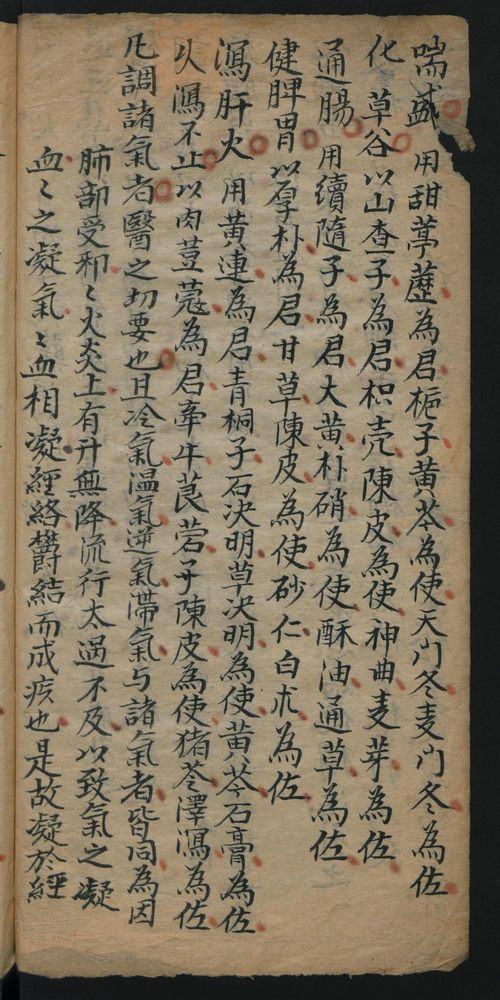 喘盛 用甜葶藶為君梔子黃芩為使天门冬麦门冬為佐
化 草谷以山查子為君枳壳陳皮為使神曲麦芽為佐
通腸 用續隨子為君大黄朴硝為使酥油通草為佐
健脾胃以厚朴為君甘草陳皮為使砂仁白朮為佐
瀉肝火 用黄連為君青桐子石决明草决明為使黄芩石膏為佐
久瀉不止以肉荳蔻為君牵牛莨菪子陳皮為使猪苓澤瀉為佐
凡調諸氣者醫之切要也且冷氣温氣逆氣滯氣与諸氣者皆同為因
肺部受邪〻火炎上有升無降流行太過不及以致氣之凝
血〻之凝氣〻血相凝經絡欝結而成疾也是故凝於經